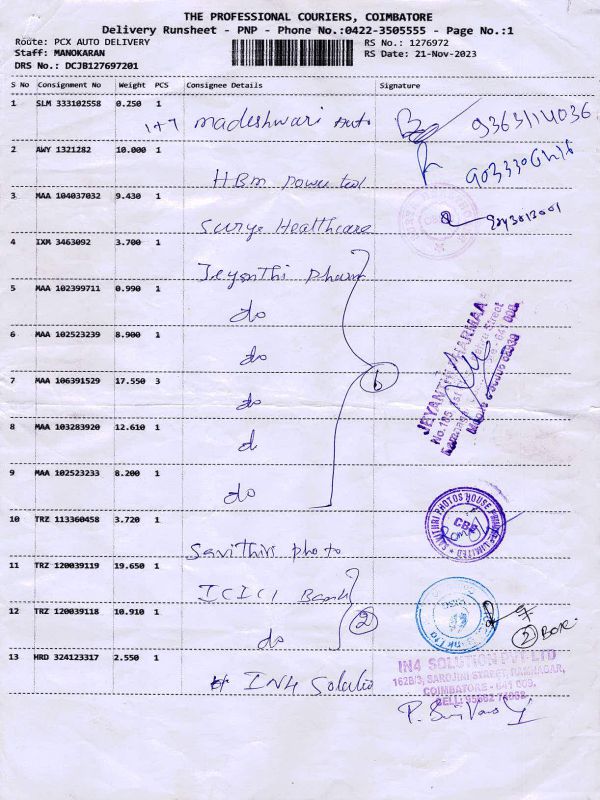 THE PROFESSIONAL COURIERS, COIMBATORE
Delivery Runsheet - PNP - Phone No.:0422-3505555 - Page No.:1
Route: PCX AUTO DELIVERY RS No.: 1276972
Staff: MANOKARAN RS Date: 21-Nov-2023
DRS No.: DCJB127697201
S No Consignment No Weight PCS Consignee Details Signature
1 SLM 333102558 0.250 1
1+7 Madeshwari Auto 9363114036
2 AWY 1321282 10.000 1
HBM power tool
3 MAA 104037032 9.430 1
Surya Healthcare
4 IXM 3463092 3.700 1
Jeyanthi pharm
5 MAA 102399711 0.990 1
do
6 MAA 102523239 8.900 1
do
7 MAA 106391529 17.550 3
do 6
8 MAA 103283920 12.610 1
d
9 MAA 102523233 8.200 1
do
JEYANTHI PHARMAA
10 TRZ 113360458 3.720 1
Savithiri photo
SAVITHRI PHOTOS HOUSE PRIVATE LIMITED
CBE
11 TRZ 120039119 19.650 1
ICICI Bank
12 TRZ 120039118 10.910 1
do 2
2 Box.
13 HRD 324123317 2.550 1
IN4 Solutio
IN4 SOLUTION PVT LTD
162B/3, SAROJINI STREET, RAMNAGAR,
COIMBATORE - 641 009.